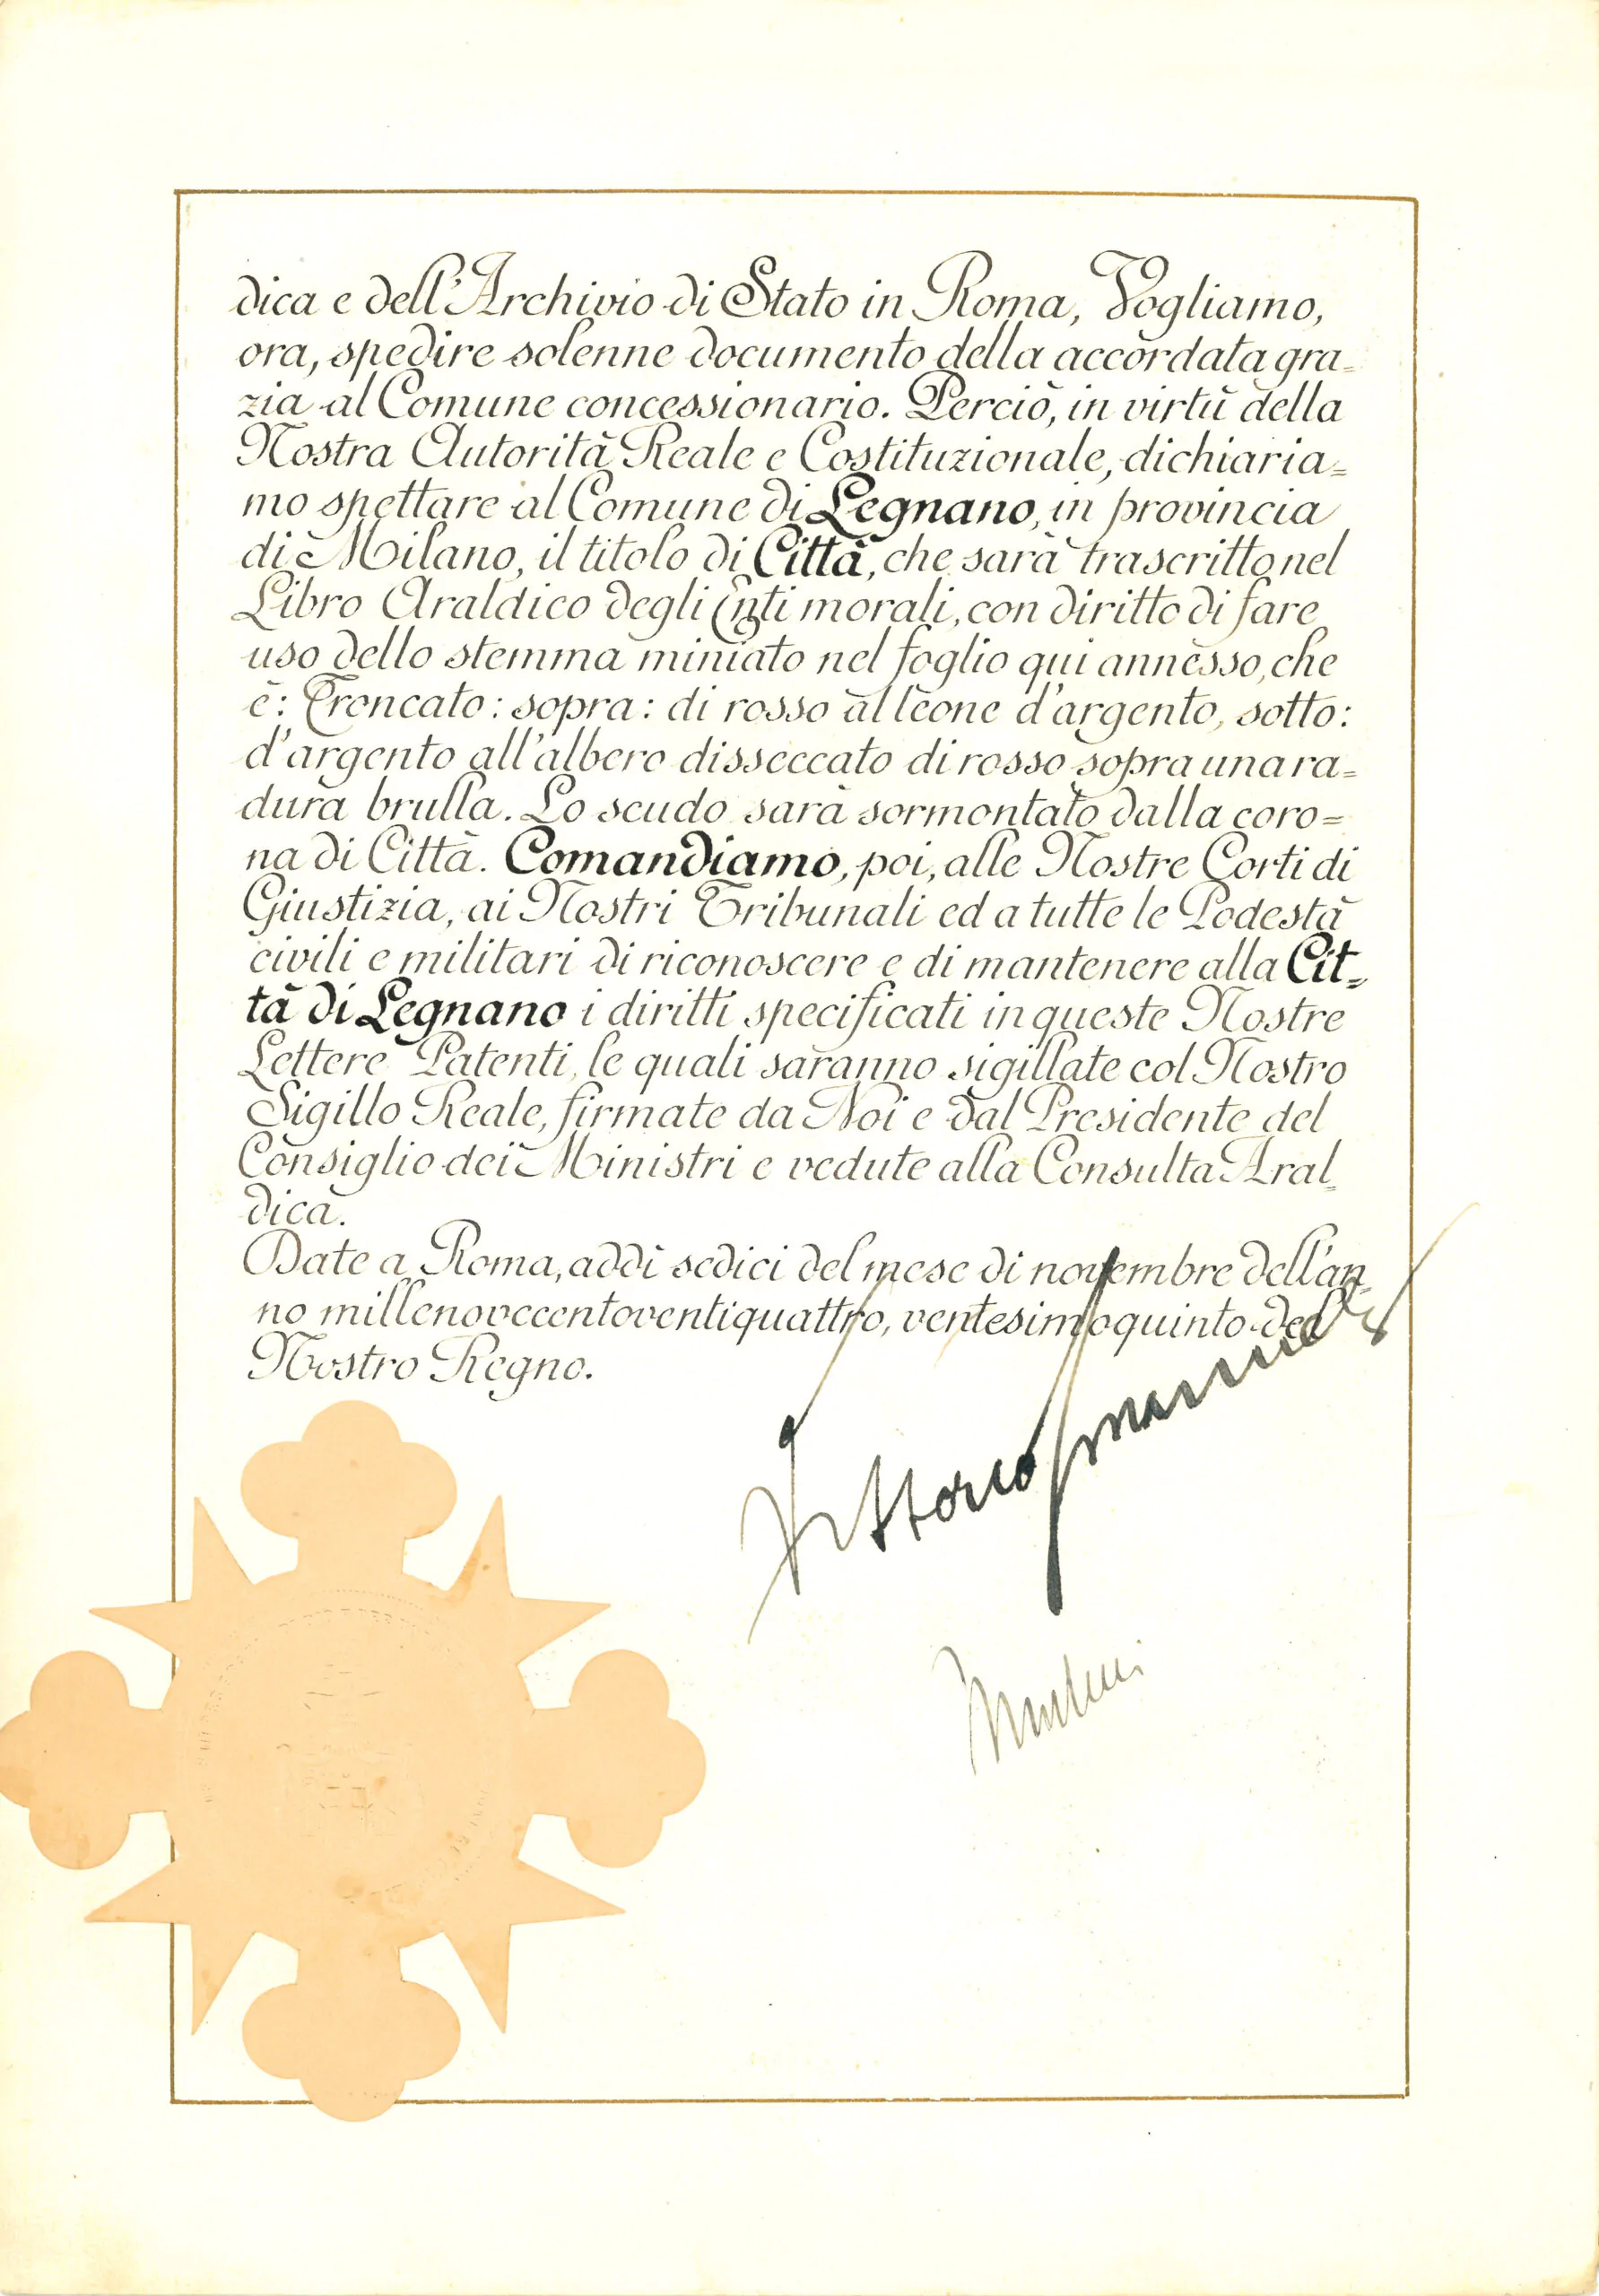 dica e dell'Archivio di Stato in Roma, Vogliamo,
ora, spedire solenne documento della accordata gra=
zia al Comune concessionario. Perciò, in virtù della
Nostra Autorità Reale e Costituzionale, dichiaria=
mo spettare al Comune di Legnano, in provincia
di Milano, il titolo di Città, che sarà trascritto nel
Libro Araldico degli Enti morali, con diritto di fare
uso dello stemma miniato nel foglio qui annesso, che
è: Troncato: sopra: di rosso al leone d'argento, sotto:
d'argento all'albero disseccato di rosso sopra una ra=
dura brulla. Lo scudo sarà sormontato dalla coro=
na di Città. Comandiamo, poi, alle Nostre Corti di
Giustizia, ai Nostri Tribunali ed a tutte le Podestà
civili e militari di riconoscere e di mantenere alla Cit=
tà di Legnano i diritti specificati in queste Nostre
Lettere Patenti, le quali saranno sigillate col Nostro
Sigillo Reale, firmate da Noi e dal Presidente del
Consiglio dei Ministri e vedute alla Consulta Aral=
dica.
Date a Roma, addì sedici del mese di novembre dell'an=
no millenovecentoventiquattro, ventesimoquinto del
Nostro Regno.
Vittorio Emanuele
Mussolini